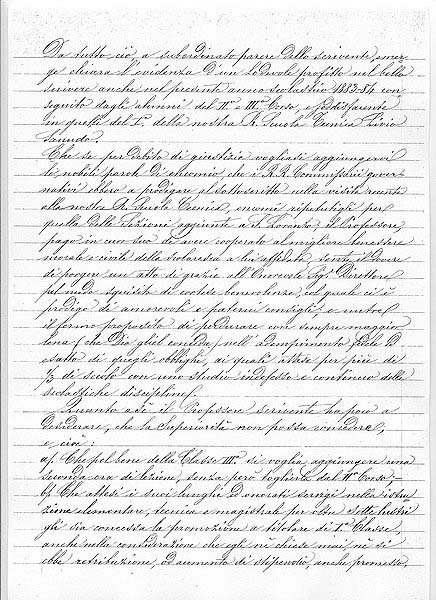 Da tutto ciò, a subordinato parere dello scrivente, emer
ge chiara l'evidenza d'un lodevole profitto nel bello
scrivere anche nel presente anno scolastico 1883-84 con
seguito dagli alunni del II.° e III.° Corso, e soddisfacente
in quelli del I.° della nostra R. Scuola Tecnica Livio
Sanudo.
Che se per debito di giustizia vogliasi aggiungervi
le nobili parole di encomio, che i R.R. Commissarii gover
nativi ebbero a prodigare al sottoscritto nella visita recente
alla nostra R. Scuola Tecnica, encomi ripetutigli per
quella delle Sezioni aggiunte a S. Lorenzo; il Professore,
pago in cuor suo di avere cooperato al migliore benessere
morale e civile della scolaresca a lui affidata, sente il dovere
di porgere un atto di grazie all'Onorevole Sig.r Direttore
pel modo squisito di cortese benevolenza, col quale ci è
prodigo di amorevoli e paterni consigli, e nutre
il fermo proposito di perdurare con sempre maggio
lena (che Dio gliel conceda) nell'adempimento fedele ed
esatto di quegli obblighi, ai quali attese per più di
1/3 di secolo con uno studio indefesso e continuo delle
scolastiche discipline.
Quanto a ciò il Professore scrivente ha poco a
desiderare, che la Superiorità non possa concedere,
e cioè:
a). Che pel bene della Classe III.a si voglia aggiungere una
seconda ora di lezione, senza però toglierla dal II° Corso;
b). Che attesi i suoi lunghi ed onorati servigi nella istru
zione elementare, tecnica e magistrale per oltre sette lustri
gli sia concessa la promozione a titolare di I.a Classe,
anche nella considerazione che egli nè chiese mai, nè si
ebbe retribuzione, od aumento di stipendio, anche promesso.